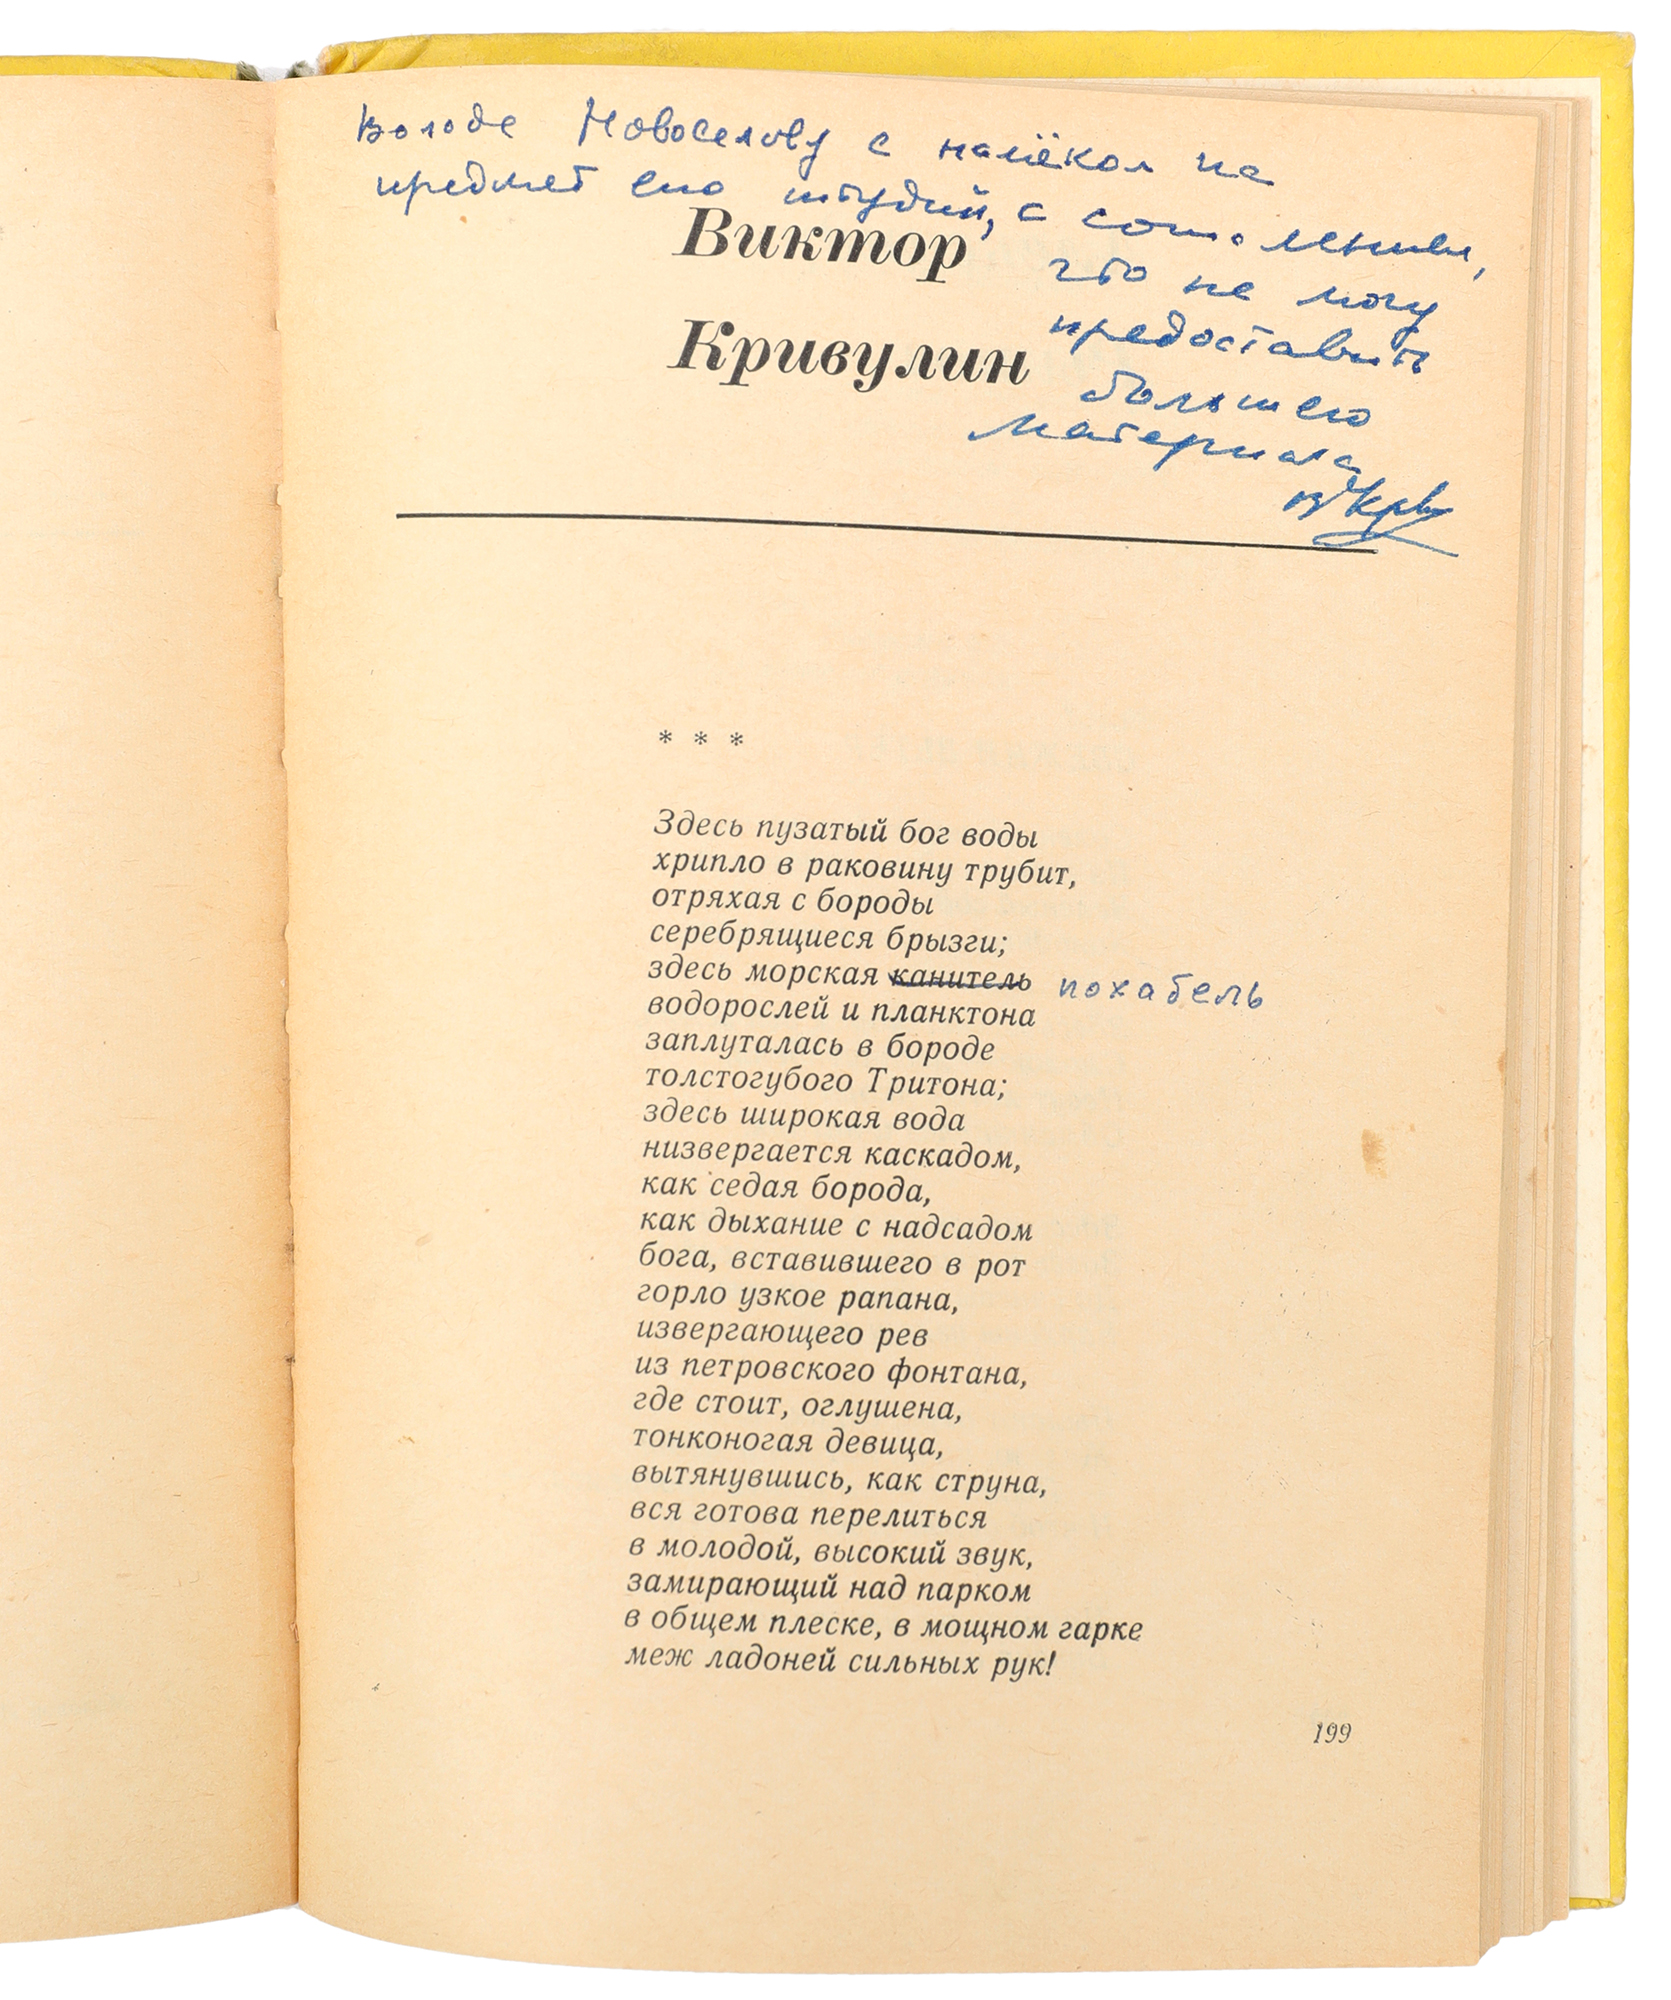 Володе Новоселову с намёком на
предмет его штудий, с сожалением,
что не могу
предоставить
большего
материала
ВКрив
Виктор
Кривулин
* * *
Здесь пузатый бог воды
хрипло в раковину трубит,
отряхая с бороды
серебрящиеся брызги;
здесь морская канитель похабель
водорослей и планктона
заплуталась в бороде
толстогубого Тритона;
здесь широкая вода
низвергается каскадом,
как седая борода,
как дыхание с надсадом
бога, вставившего в рот
горло узкое рапана,
извергающего рев
из петровского фонтана,
где стоит, оглушена,
тонконогая девица,
вытянувшись, как струна,
вся готова перелиться
в молодой, высокий звук,
замирающий над парком
в общем плеске, в мощном гарке
меж ладоней сильных рук!
199